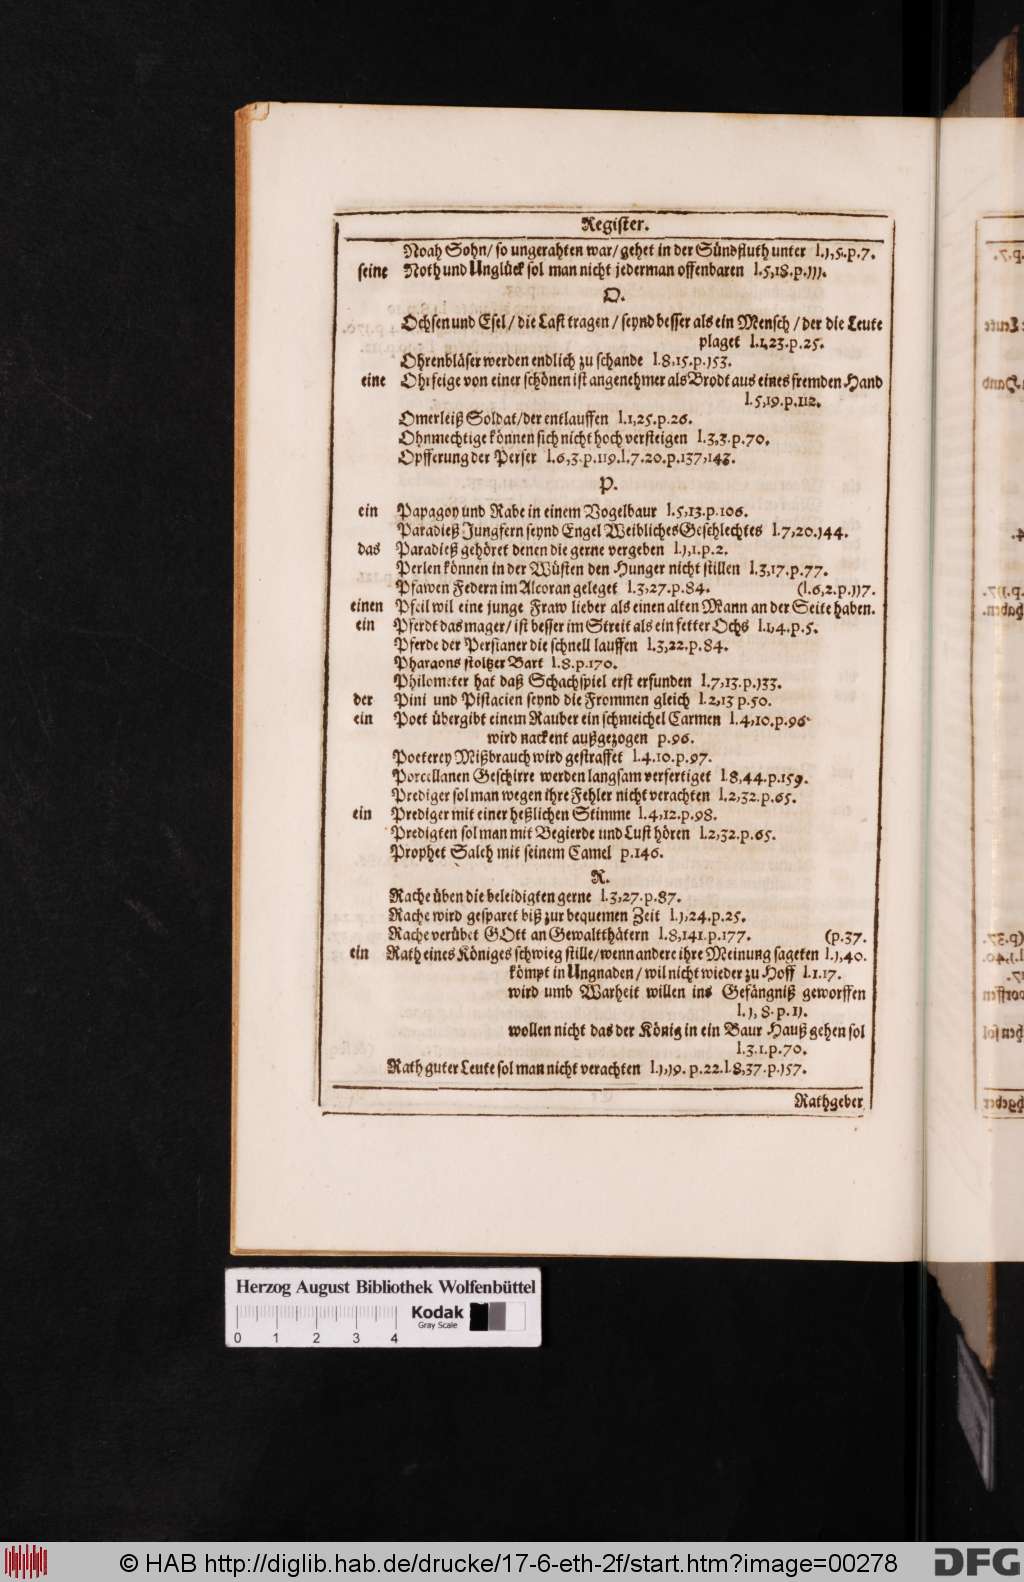 Register.
Noah Sohn/ so ungerahten war/ gehet in der Sündfluth unter l.1,5.p.7.
seine Noth und Unglück sol man nicht jederman offenbaren l.5,18.p.111.
O.
Ochsen und Esel/ die Last tragen/ seynd besser als ein Mensch/ der die Leute
plaget l.1,23.p.25.
Ohrenbläser werden endlich zu schande l.8,15.p.153.
eine Ohrfeige von einer schönen ist angenehmer als Brodt aus eines fremden Hand
l.5,19.p.112.
Omerleiß Soldat/ der entlauffen l.1,25.p.26.
Ohnmechtige können sich nicht hoch versteigen l.3,3.p.70.
Opfferung der Perser l.6,3.p.119.l.7.20.p.137,143.
P.
ein Papagoy und Rabe in einem Vogelbaur l.5,13.p.106.
Paradieß Jungfern seynd Engel Weibliches Geschlechtes l.7,20.144.
das Paradieß gehöret denen die gerne vergeben l.1,1.p.2.
Perlen können in der Wüsten den Hunger nicht stillen l.3,17.p.77.
Pfawen Federn im Alcoran geleget l.3,27.p.84. (l.6,2.p.117.
einen Pfeil wil eine junge Fraw lieber als einen alten Mann an der Seite haben.
ein Pferdt das mager/ ist besser im Streit als ein fetter Ochs l.1,4.p.5.
Pferde der Persianer die schnell lauffen l.3,22.p.84.
Pharaons stoltzer Bart l.8.p.170.
Philometer hat daß Schachspiel erst erfunden l.7,13.p.133.
der Pini und Pistacien seynd die Frommen gleich l.2,13 p.50.
ein Poet übergibt einem Rauber ein schmeichel Carmen l.4,10.p.96
wird nackent außgezogen p.96.
Poeterey Mißbrauch wird gestraffet l.4.10.p.97.
Porcellanen Geschirre werden langsam verfertiget l.8,44.p.159.
Prediger sol man wegen ihre Fehler nicht verachten l.2,32.p.65.
ein Prediger mit einer heßlichen Stimme l.4,12.p.98.
Predigten sol man mit Begierde und Lust hören l.2,32.p.65.
Prophet Saleh mit seinem Camel p.146.
R.
Rache üben die beleidigten gerne l.3,27.p.87.
Rache wird gesparet biß zur bequemen Zeit l.1,24.p.25.
Rache verübet GOtt an Gewaltthätern l.8,141.p.177. (p.37.
ein Rath eines Königes schwieg stille/ wenn andere ihre Meinung sageten l.1,40.
kömpt in Ungnaden/ wil nicht wieder zu Hoff l.1.17.
wird umb Warheit willen ins Gefängniß geworffen
l.1,8.p.11.
wollen nicht das der König in ein Baur Hauß gehen sol
l.3.1.p.70.
Rath guter Leute sol man nicht verachten l.1,19.p.22.l.8,37.p.157.
Rathgeber
Herzog August Bibliothek Wolfenbüttel
Kodak
Gray Scale
0 1 2 3 4
© HAB http://diglib.hab.de/drucke/17-6-eth-2f/start.htm?image=00278
DFG